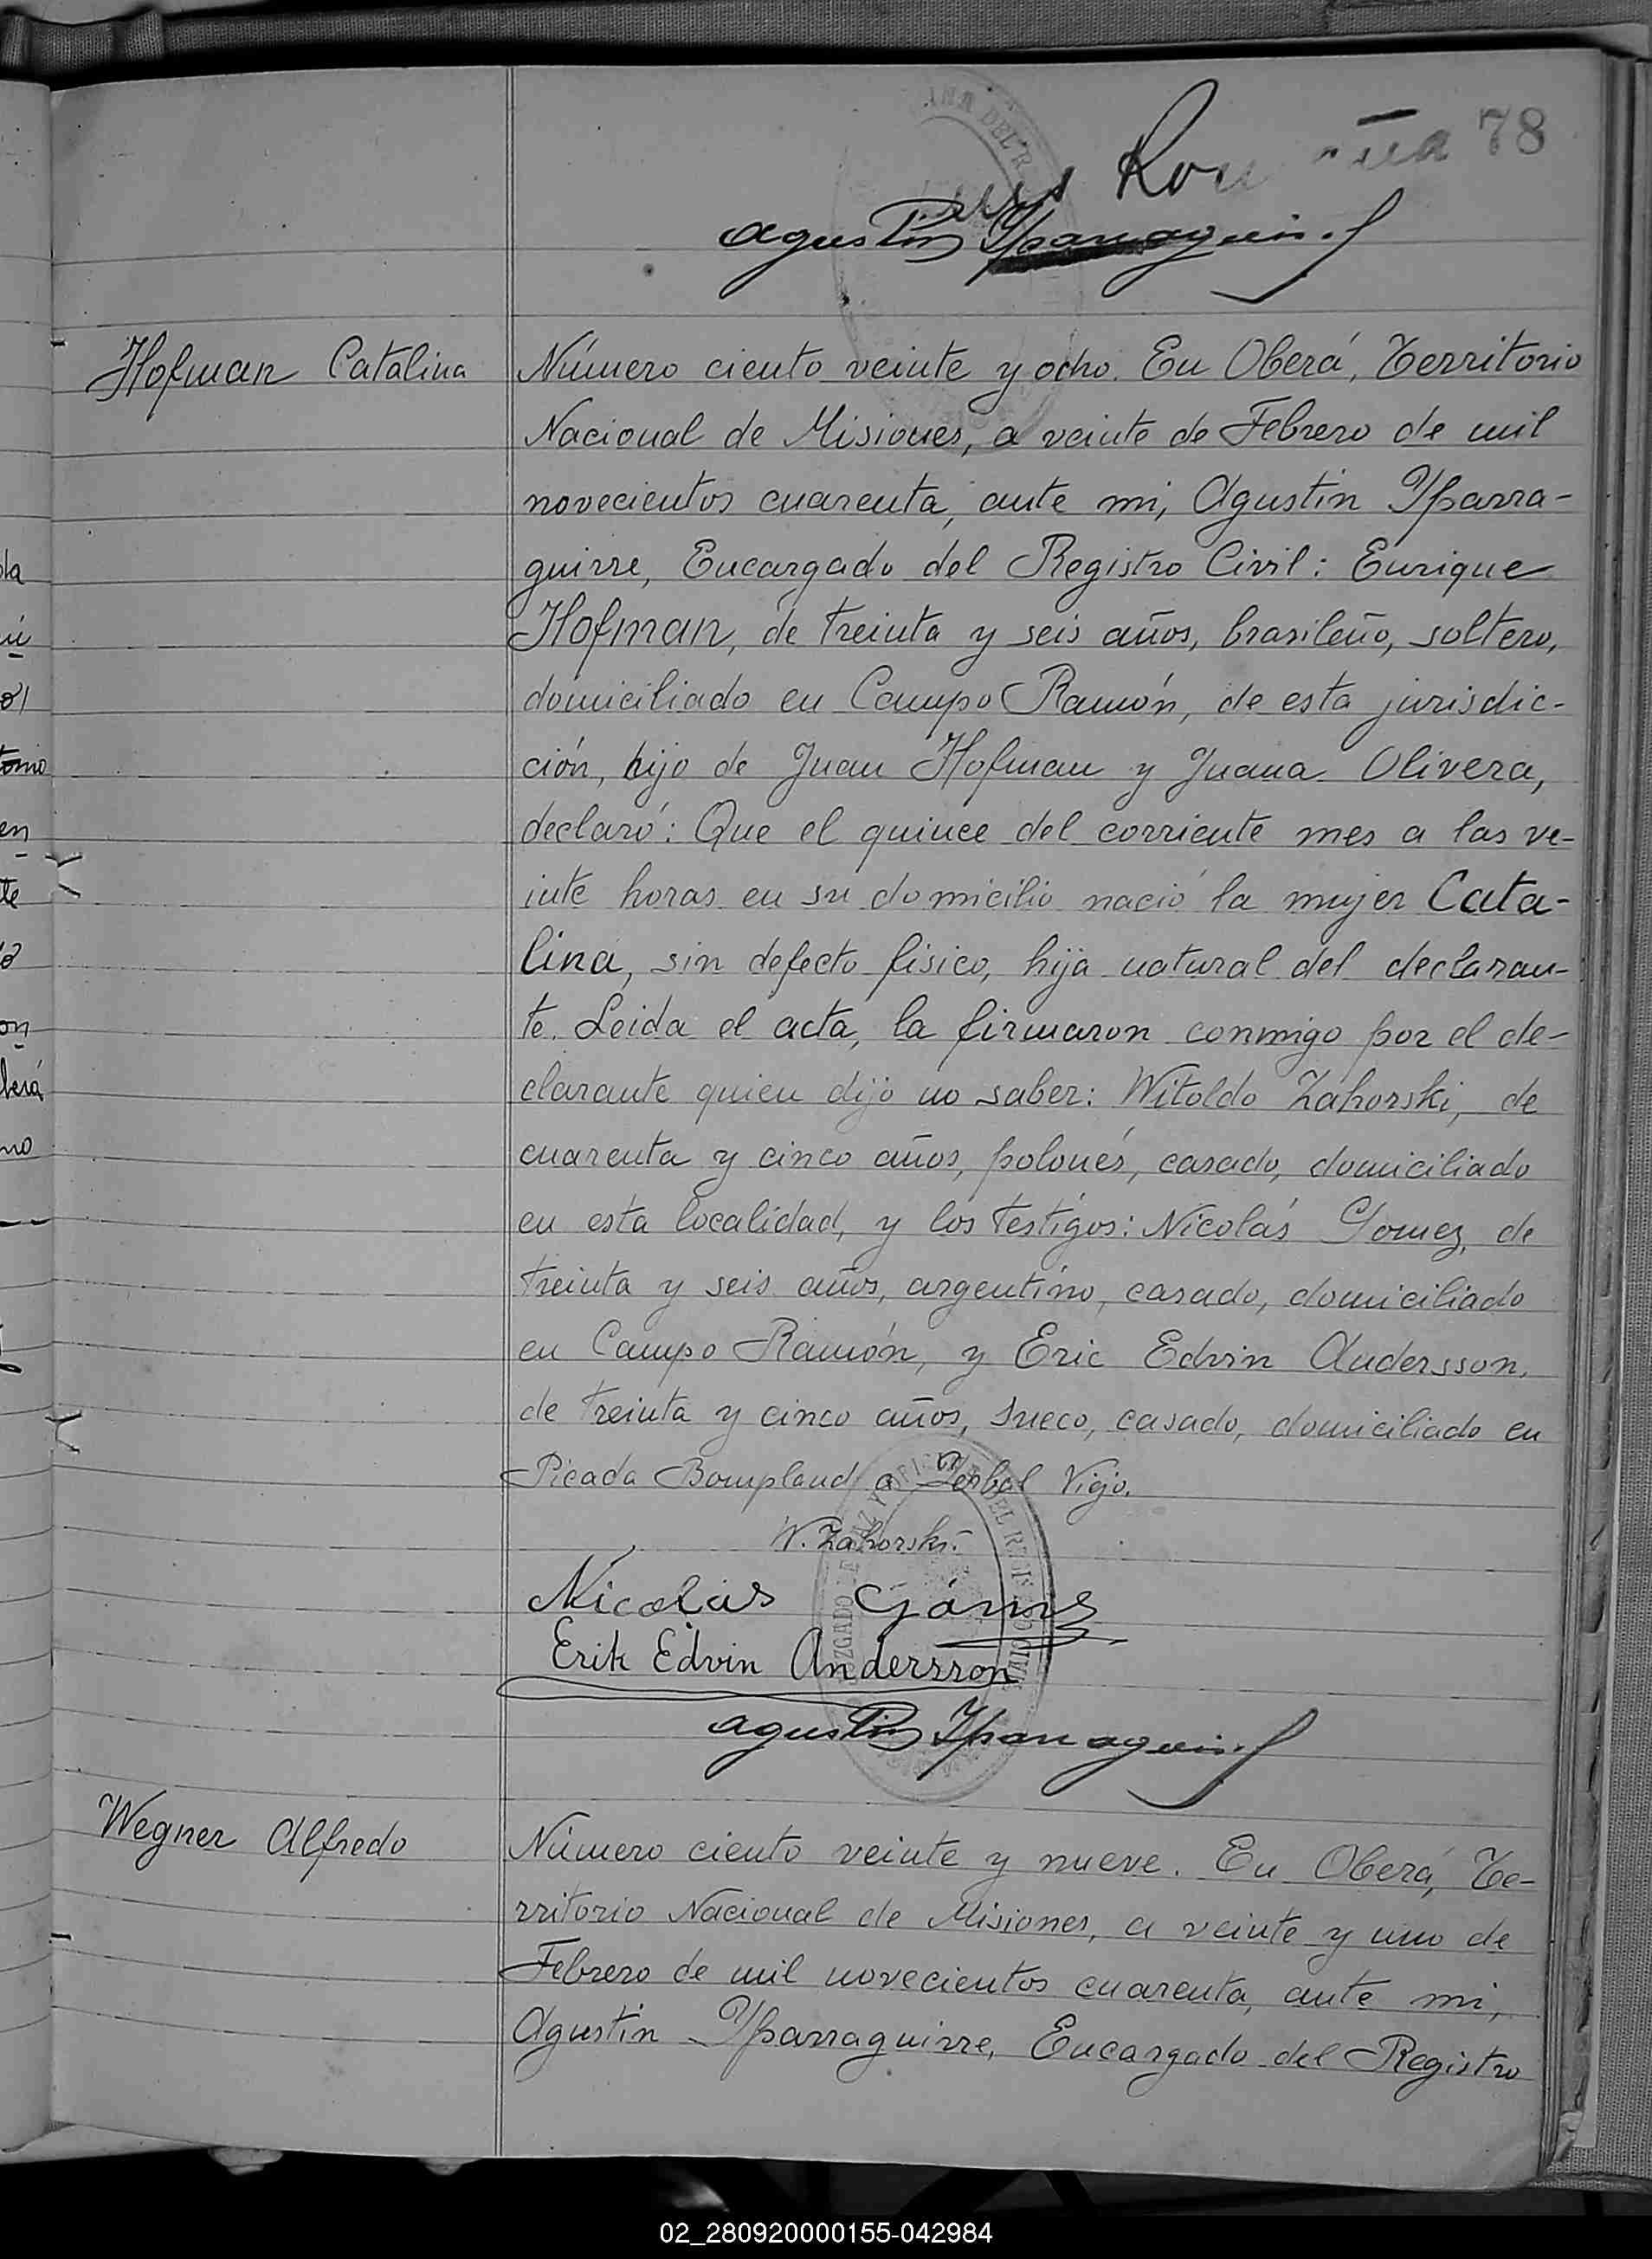 78
Agustin Yparraguirre
Hofman Catalina
Número ciento veinte y ocho. En Oberá, Territorio
Nacional de Misiones, a veinte de Febrero de mil
novecientos cuarenta, ante mi, Agustin Yparra-
guirre, Encargado del Registro Civil: Enrique
Hofman, de treinta y seis años, brasileño, soltero,
domiciliado en Campo Ramón, de esta jurisdic-
ción, hijo de Juan Hofman y Juana Olivera,
declaró: Que el quince del corriente mes a las ve-
inte horas en su domicilio nació la mujer Cata-
lina, sin defecto fisico, hija natural del declaran-
te. Leida el acta, la firmaron conmigo por el de-
clarante quien dijo no saber: Witoldo Zahorski, de
cuarenta y cinco años, polonés, casado, domiciliado
en esta localidad, y los testigos: Nicolás Gomez, de
treinta y seis años, argentino, casado, domiciliado
en Campo Ramón, y Eric Edvin Andersson,
de treinta y cinco años, sueco, casado, domiciliado en
Picada Bompland a Yerbal Viejo.
W. Zahorski.
Nicolás
Erik Edvin Andersson
Agustin Yparraguirre
Wegner Alfredo
Número ciento veinte y nueve. En Oberá, Te-
rritorio Nacional de Misiones, a veinte y uno de
Febrero de mil novecientos cuarenta, ante mi,
Agustin Yparraguirre, Encargado del Registro
02_280920000155-042984